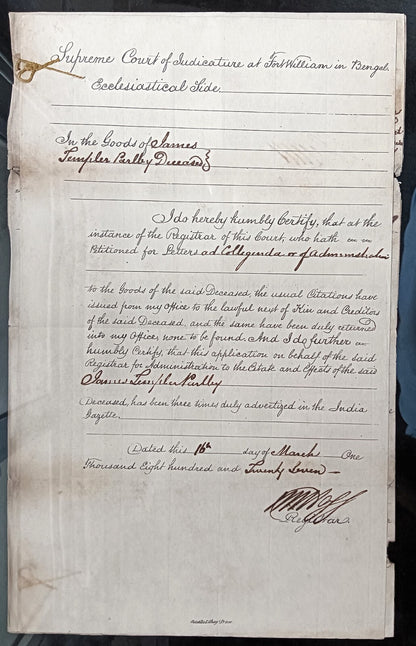 Supreme Court of Judicature at Fort William in Bengal.
Ecclesiastical Side.
In the Goods of James
Templer Parlby Deceased
I do hereby humbly Certify, that at the
instance of the Registrar of this Court, who hath
Petitioned for Letters ad Colligenda or of Administration
to the Goods of the said Deceased, the usual Citations have
issued from my Office to the lawful next of Kin and Creditors
of the said Deceased, and the same have been duly returned
into my Office, none to be found. And I do further
humbly Certify, that this application on behalf of the said
Registrar for Administration to the Estate and Effects of the said
James Templer Parlby
Deceased, has been three times duly advertized in the India
Gazette.
Dated this 16th day of March One
Thousand Eight hundred and Twenty Seven
Registrar